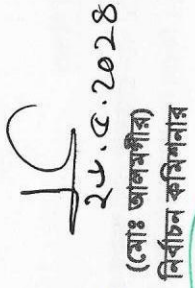 ২৮.৫.২০২৪
(মোঃ আলমগীর)
নির্বাচন কমিশনার